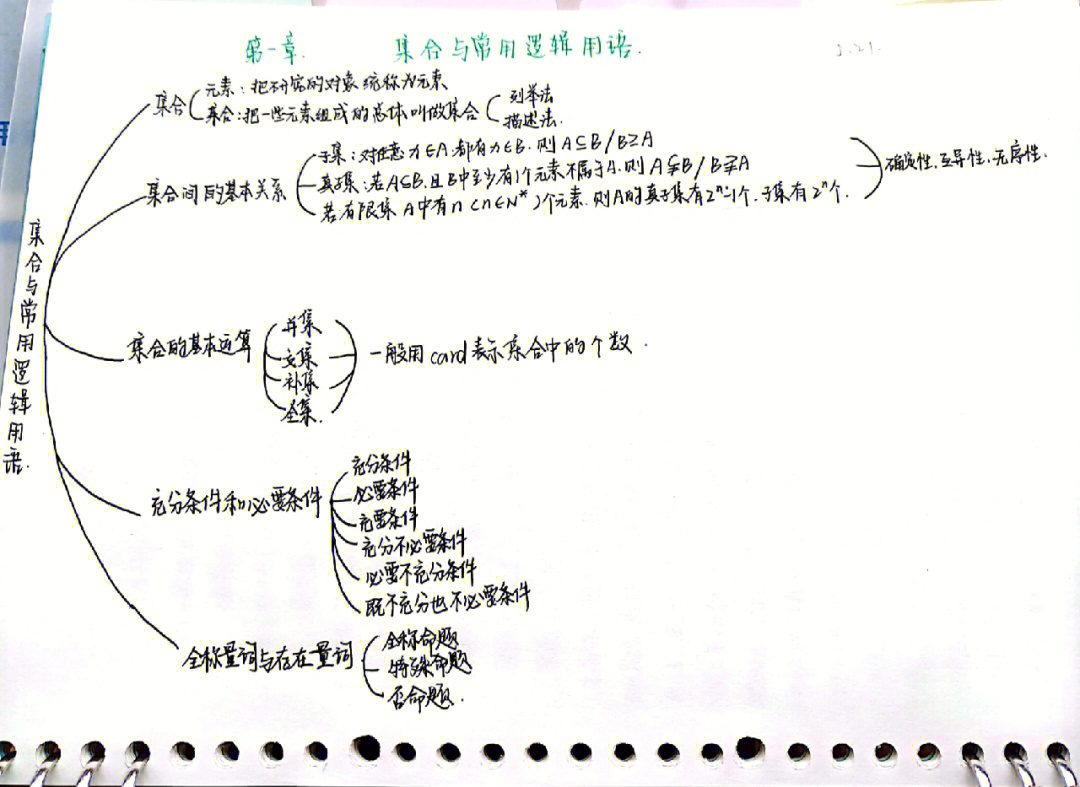 第一章. 集合与常用逻辑用语.
集合与常用逻辑用语.
集合
元素：把研究的对象统称为元素
集合：把一些元素组成的总体叫做集合
列举法
描述法.
集合间的基本关系
子集：对任意x∈A,都有x∈B.则A⊆B/B⊇A
真子集：若A⊆B,且B中至少有1个元素不属于A.则A⫋B/B⫌A
若有限集A中有n(n∈N*)个元素.则A的真子集有2ⁿ-1个.子集有2ⁿ个.
确定性.互异性.无序性.
集合的基本运算
并集
交集
补集
全集.
一般用card表示集合中的个数.
充分条件和必要条件
充分条件
必要条件
充要条件
充分不必要条件
必要不充分条件
既不充分也不必要条件
全称量词与存在量词
全称命题
特殊命题
否命题.